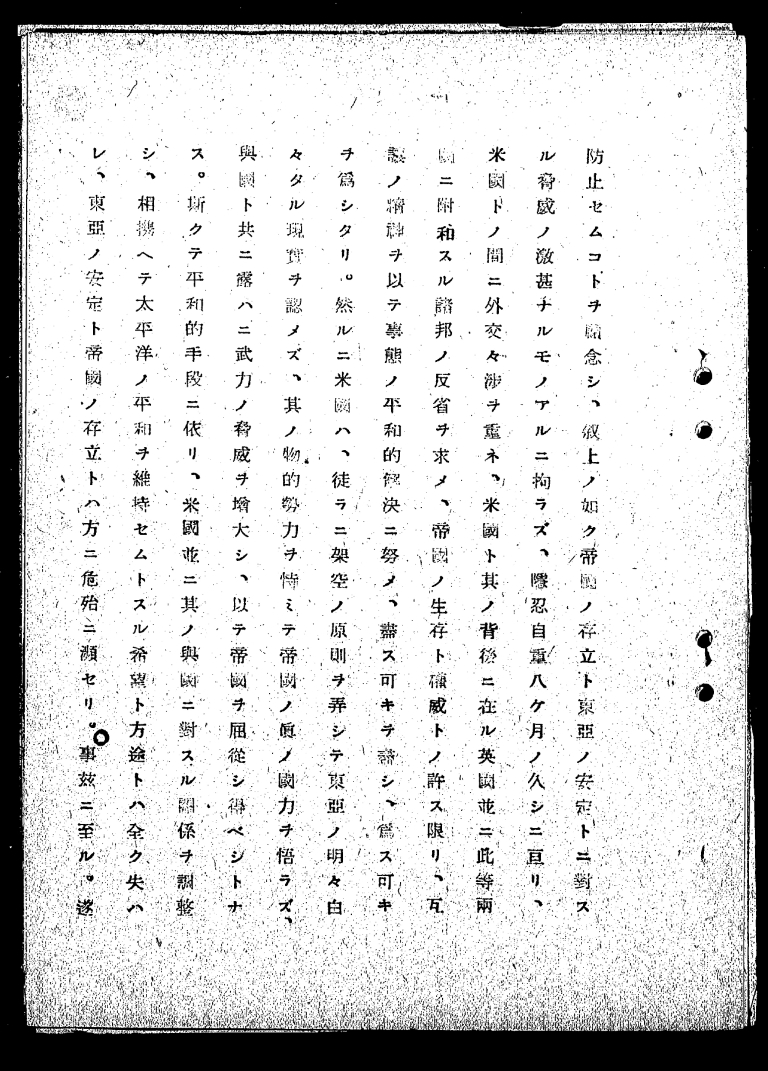 防止セムコトヲ顧念シ、叙上ノ如ク帝國ノ存立ト東亞ノ安定トニ對ス
ル脅威ノ激甚ナルモノアルニ拘ラズ、隱忍自重八ケ月ノ久シニ亘リ、
米國トノ間ニ外交々渉ヲ重ネ、米國ト其ノ背後ニ在ル英國並ニ此等兩
國ニ附和スル諸邦ノ反省ヲ求メ、帝國ノ生存ト權威トノ許ス限リ、互
讓ノ精神ヲ以テ事態ノ平和的解決ニ努メ、盡ス可キヲ盡シ、爲ス可キ
ヲ爲シタリ。然ルニ米國ハ、徒ラニ架空ノ原則ヲ弄シテ東亞ノ明々白
々タル現實ヲ認メズ、其ノ物的勢力ヲ恃ミテ帝國ノ眞ノ國力ヲ悟ラズ、
與國ト共ニ露ハニ武力ノ脅威ヲ增大シ、以テ帝國ヲ屈從シ得ベシトナ
ス。斯クテ平和的手段ニ依リ、米國並ニ其ノ與國ニ對スル關係ヲ調整
シ、相携ヘテ太平洋ノ平和ヲ維持セムトスル希望ト方途トハ全ク失ハ
レ、東亞ノ安定ト帝國ノ存立トハ方ニ危殆ニ瀕セリ。事玆ニ至ル。遂